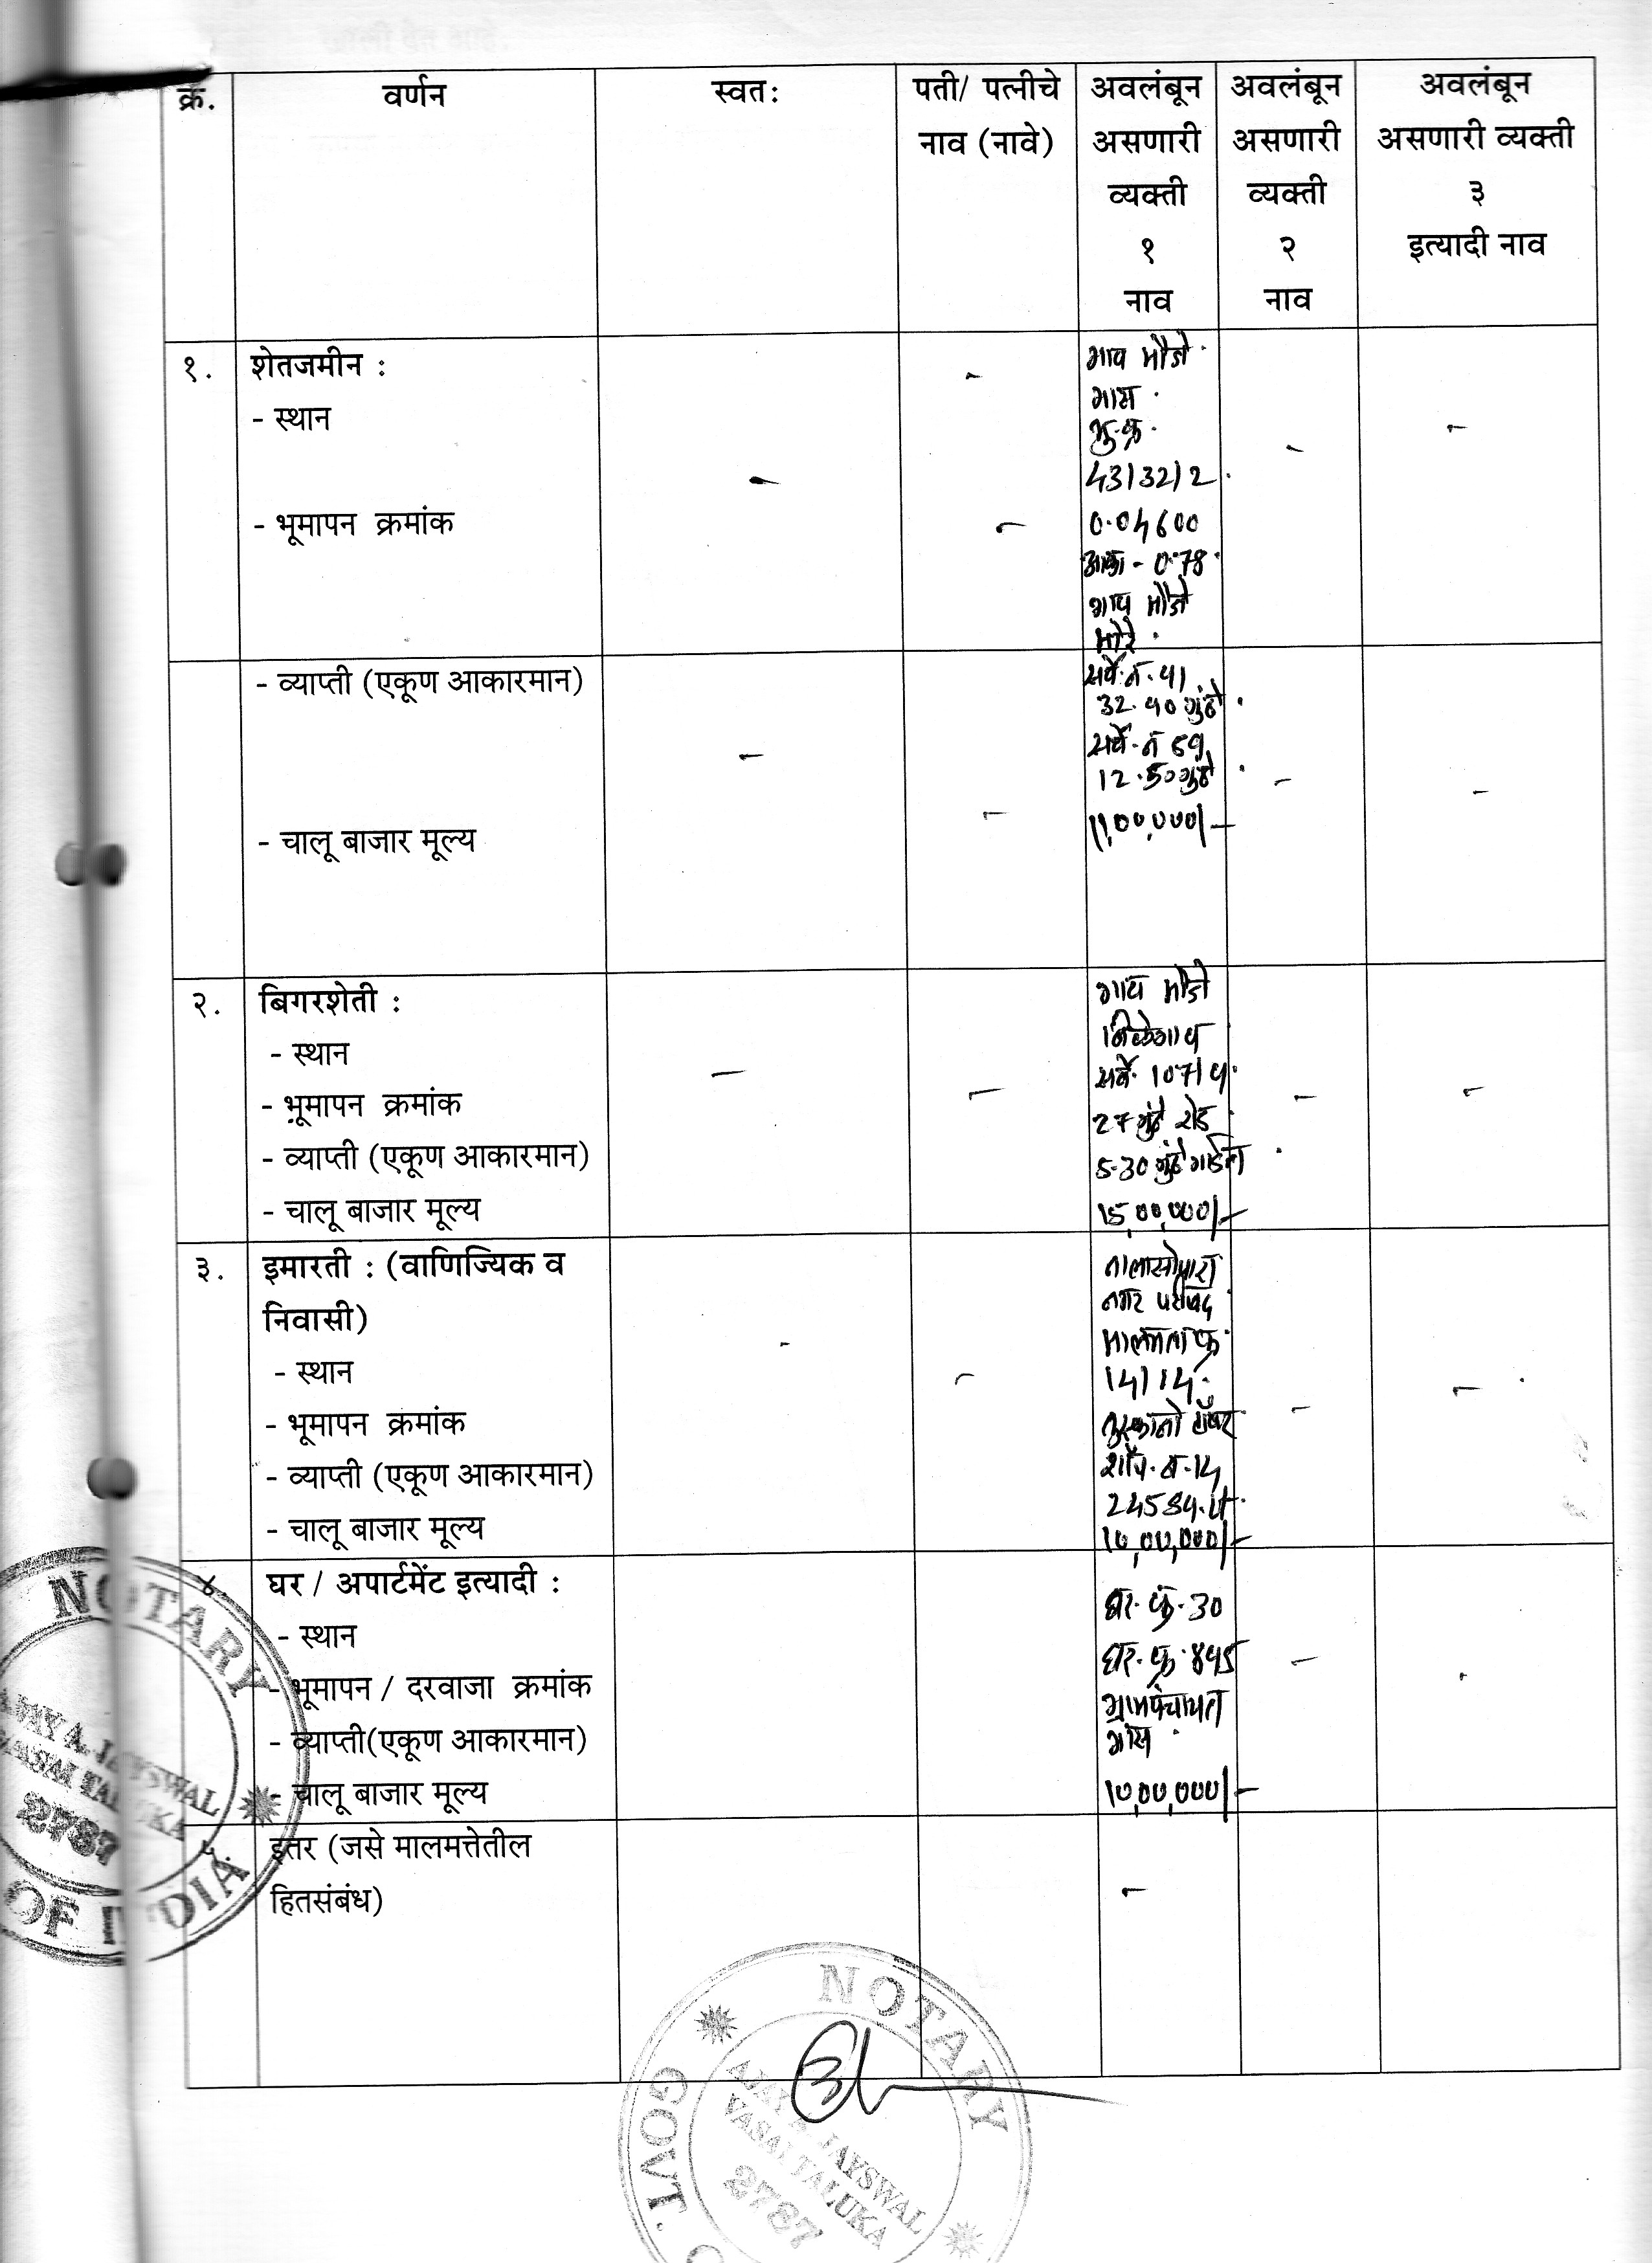 क्र.
वर्णन
स्वतः
पती/ पत्नीचे
नाव (नावे)
अवलंबून
असणारी
व्यक्ती
१
नाव
अवलंबून
असणारी
व्यक्ती
२
नाव
अवलंबून
असणारी व्यक्ती
३
इत्यादी नाव
१.
शेतजमीन :
- स्थान
- भूमापन क्रमांक
गाव मौजे
गास
भु.क्र.
0.04600
आका - 0.78
गाव मौजे
मोरे
- व्याप्ती (एकूण आकारमान)
- चालू बाजार मूल्य
सर्वे. नं.
गुंठे
सर्वे. नं
12.50 गुंठे
11,00,000/-
२.
बिगरशेती :
- स्थान
- भूमापन क्रमांक
- व्याप्ती (एकूण आकारमान)
- चालू बाजार मूल्य
गाव मौजे
निळेगाव
सर्वे. 107/
27 गुंठे रोड
5.30 गुंठे गार्डन
15,00,000/-
३.
इमारती : (वाणिज्यिक व
निवासी)
- स्थान
- भूमापन क्रमांक
- व्याप्ती (एकूण आकारमान)
- चालू बाजार मूल्य
नालासोपारा
नगर परिषद
मालमत्ता क्र.
टॉवर
शॉप. नं.
10,00,000/-
४.
घर / अपार्टमेंट इत्यादी :
- स्थान
- भूमापन / दरवाजा क्रमांक
- व्याप्ती(एकूण आकारमान)
- चालू बाजार मूल्य
घर. क्रं. 30
घर. क्रं.
ग्रामपंचायत
गास
10,00,000/-
५.
इतर (जसे मालमत्तेतील
हितसंबंध)
NOTARY
AJAY A. JAYSWAL
VASAI TALUKA
2787
OF INDIA
NOTARY
AJAY A. JAYSWAL
VASAI TALUKA
2787
GOVT.